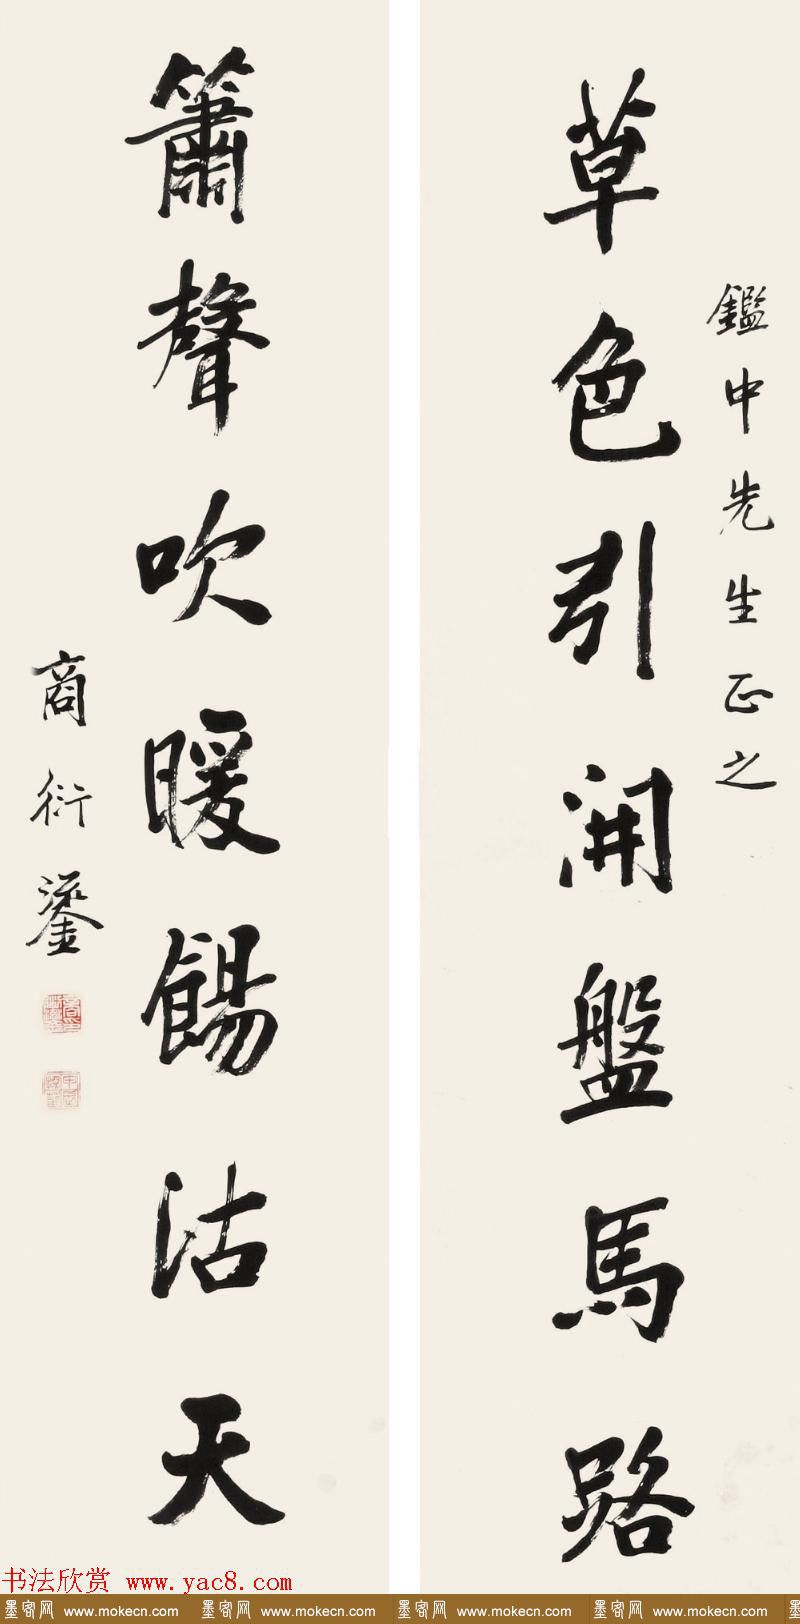 鑑中先生正之
草色引開盤馬路
簫聲吹暖餳沽天
商衍鎏
书法欣赏 www.yac8.com
墨客网 www.mokecn.com 墨客网 www.mokecn.com 墨客网 www.mokecn.com 墨客网 www.mokecn.com